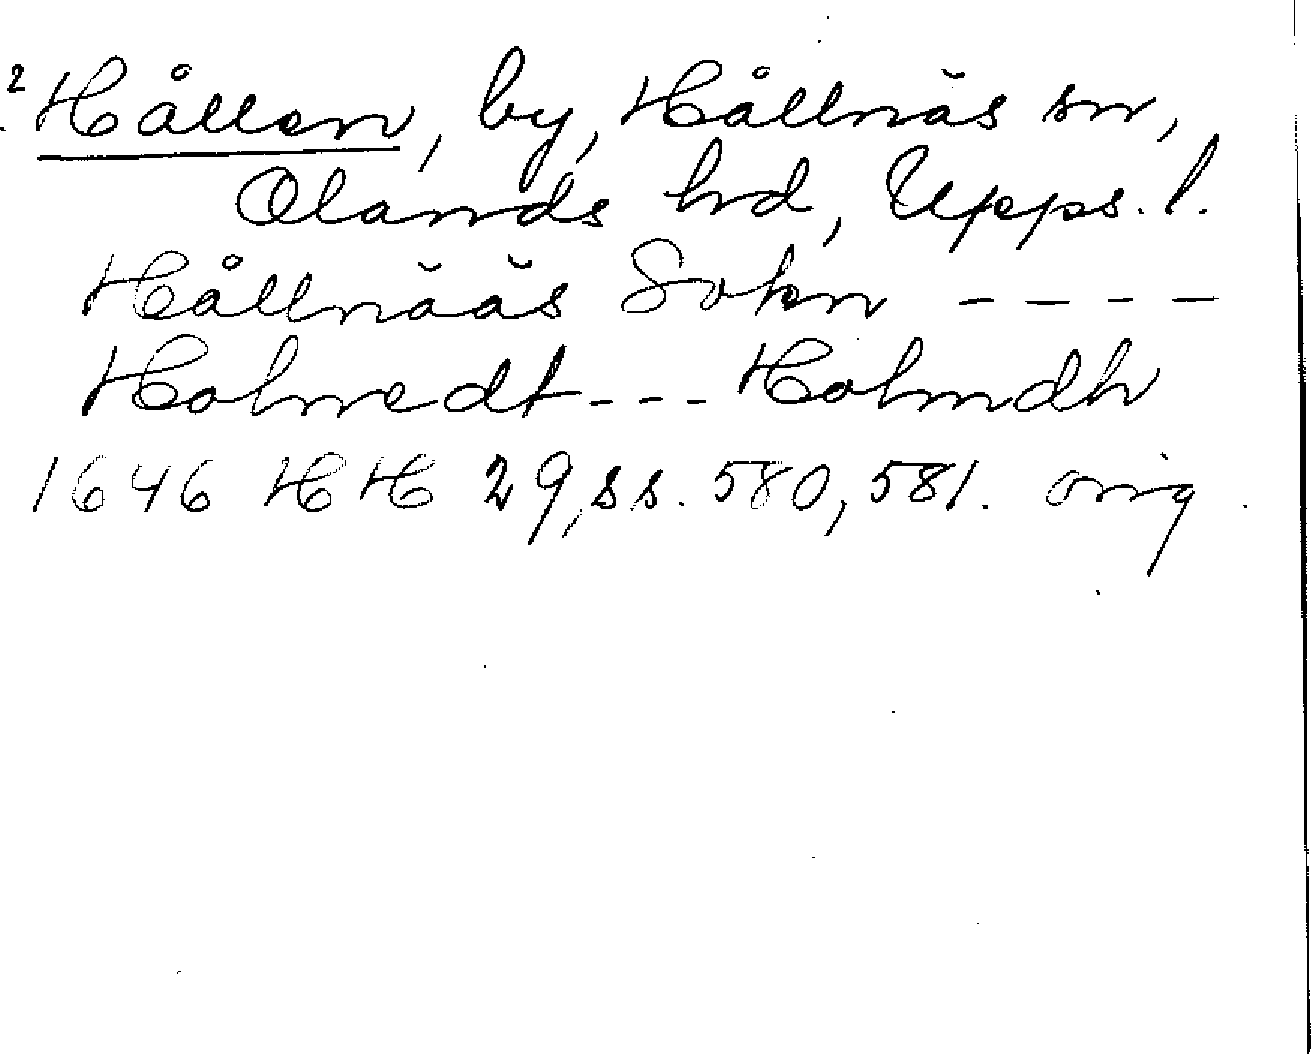 2 Hållen, by, Hållnäs sn,
Olands hrd, Upps. l.
Hållnääs Sokn - - - -
Holmedt - - - Holmdh
1646 HH 29, ss. 580, 581. orig.